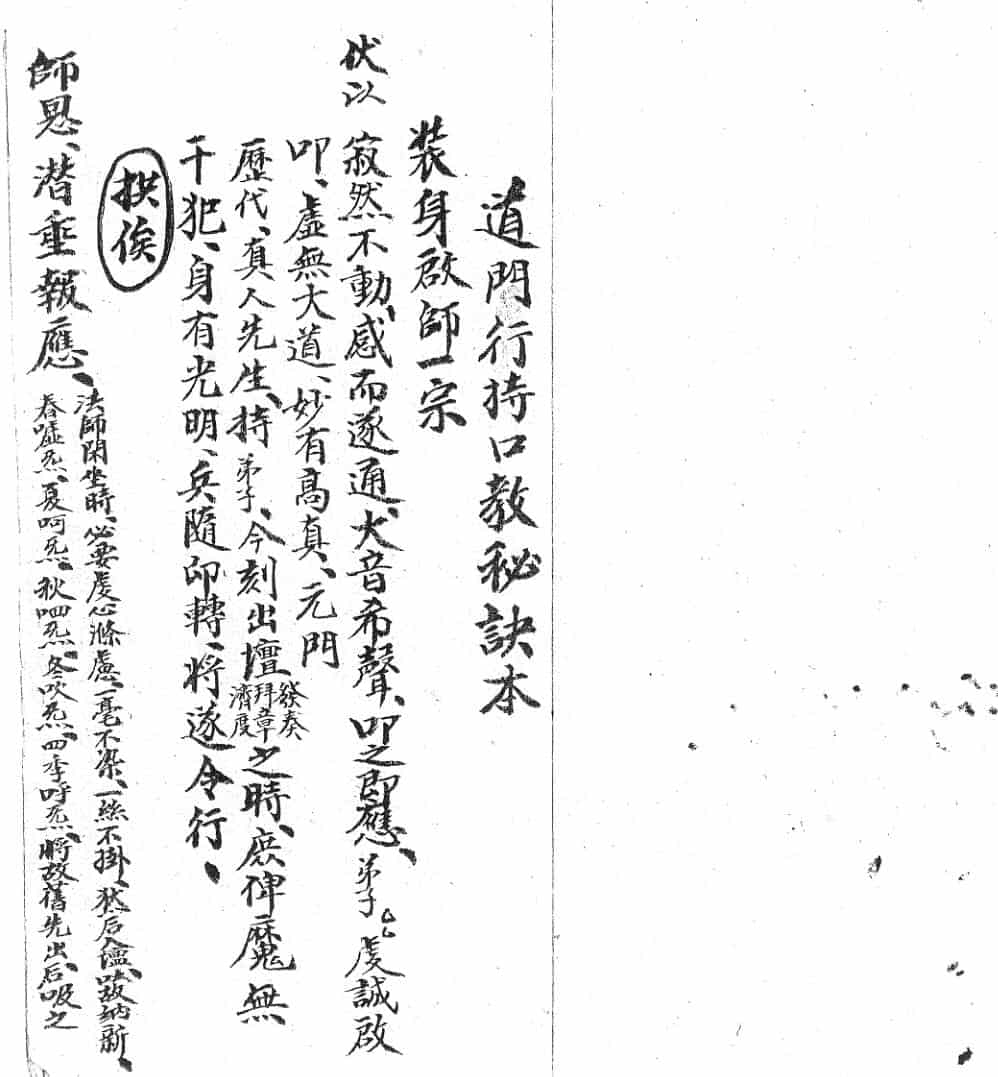 道門行持口教秘訣本
裝身啟師一宗
伏以 寂然不動、感而遂通、大音希聲、叩之即應、弟子厶厶虔誠啟
叩、虛無大道、妙有高真、元門
歷代、真人先生、持弟子、今刻出壇發奏拜章濟度之時、庶俾魔無
干犯、身有光明、兵隨印轉、將遂令行、
拱俟
師恩、潛垂報應、
法師閑坐時、必要虔心滌慮、一毫不染、一絲不掛、然后入壇、故納新、
春噓炁、夏呵炁、秋呬炁、冬吹炁、四季呼炁、將故舊先出、后吸之